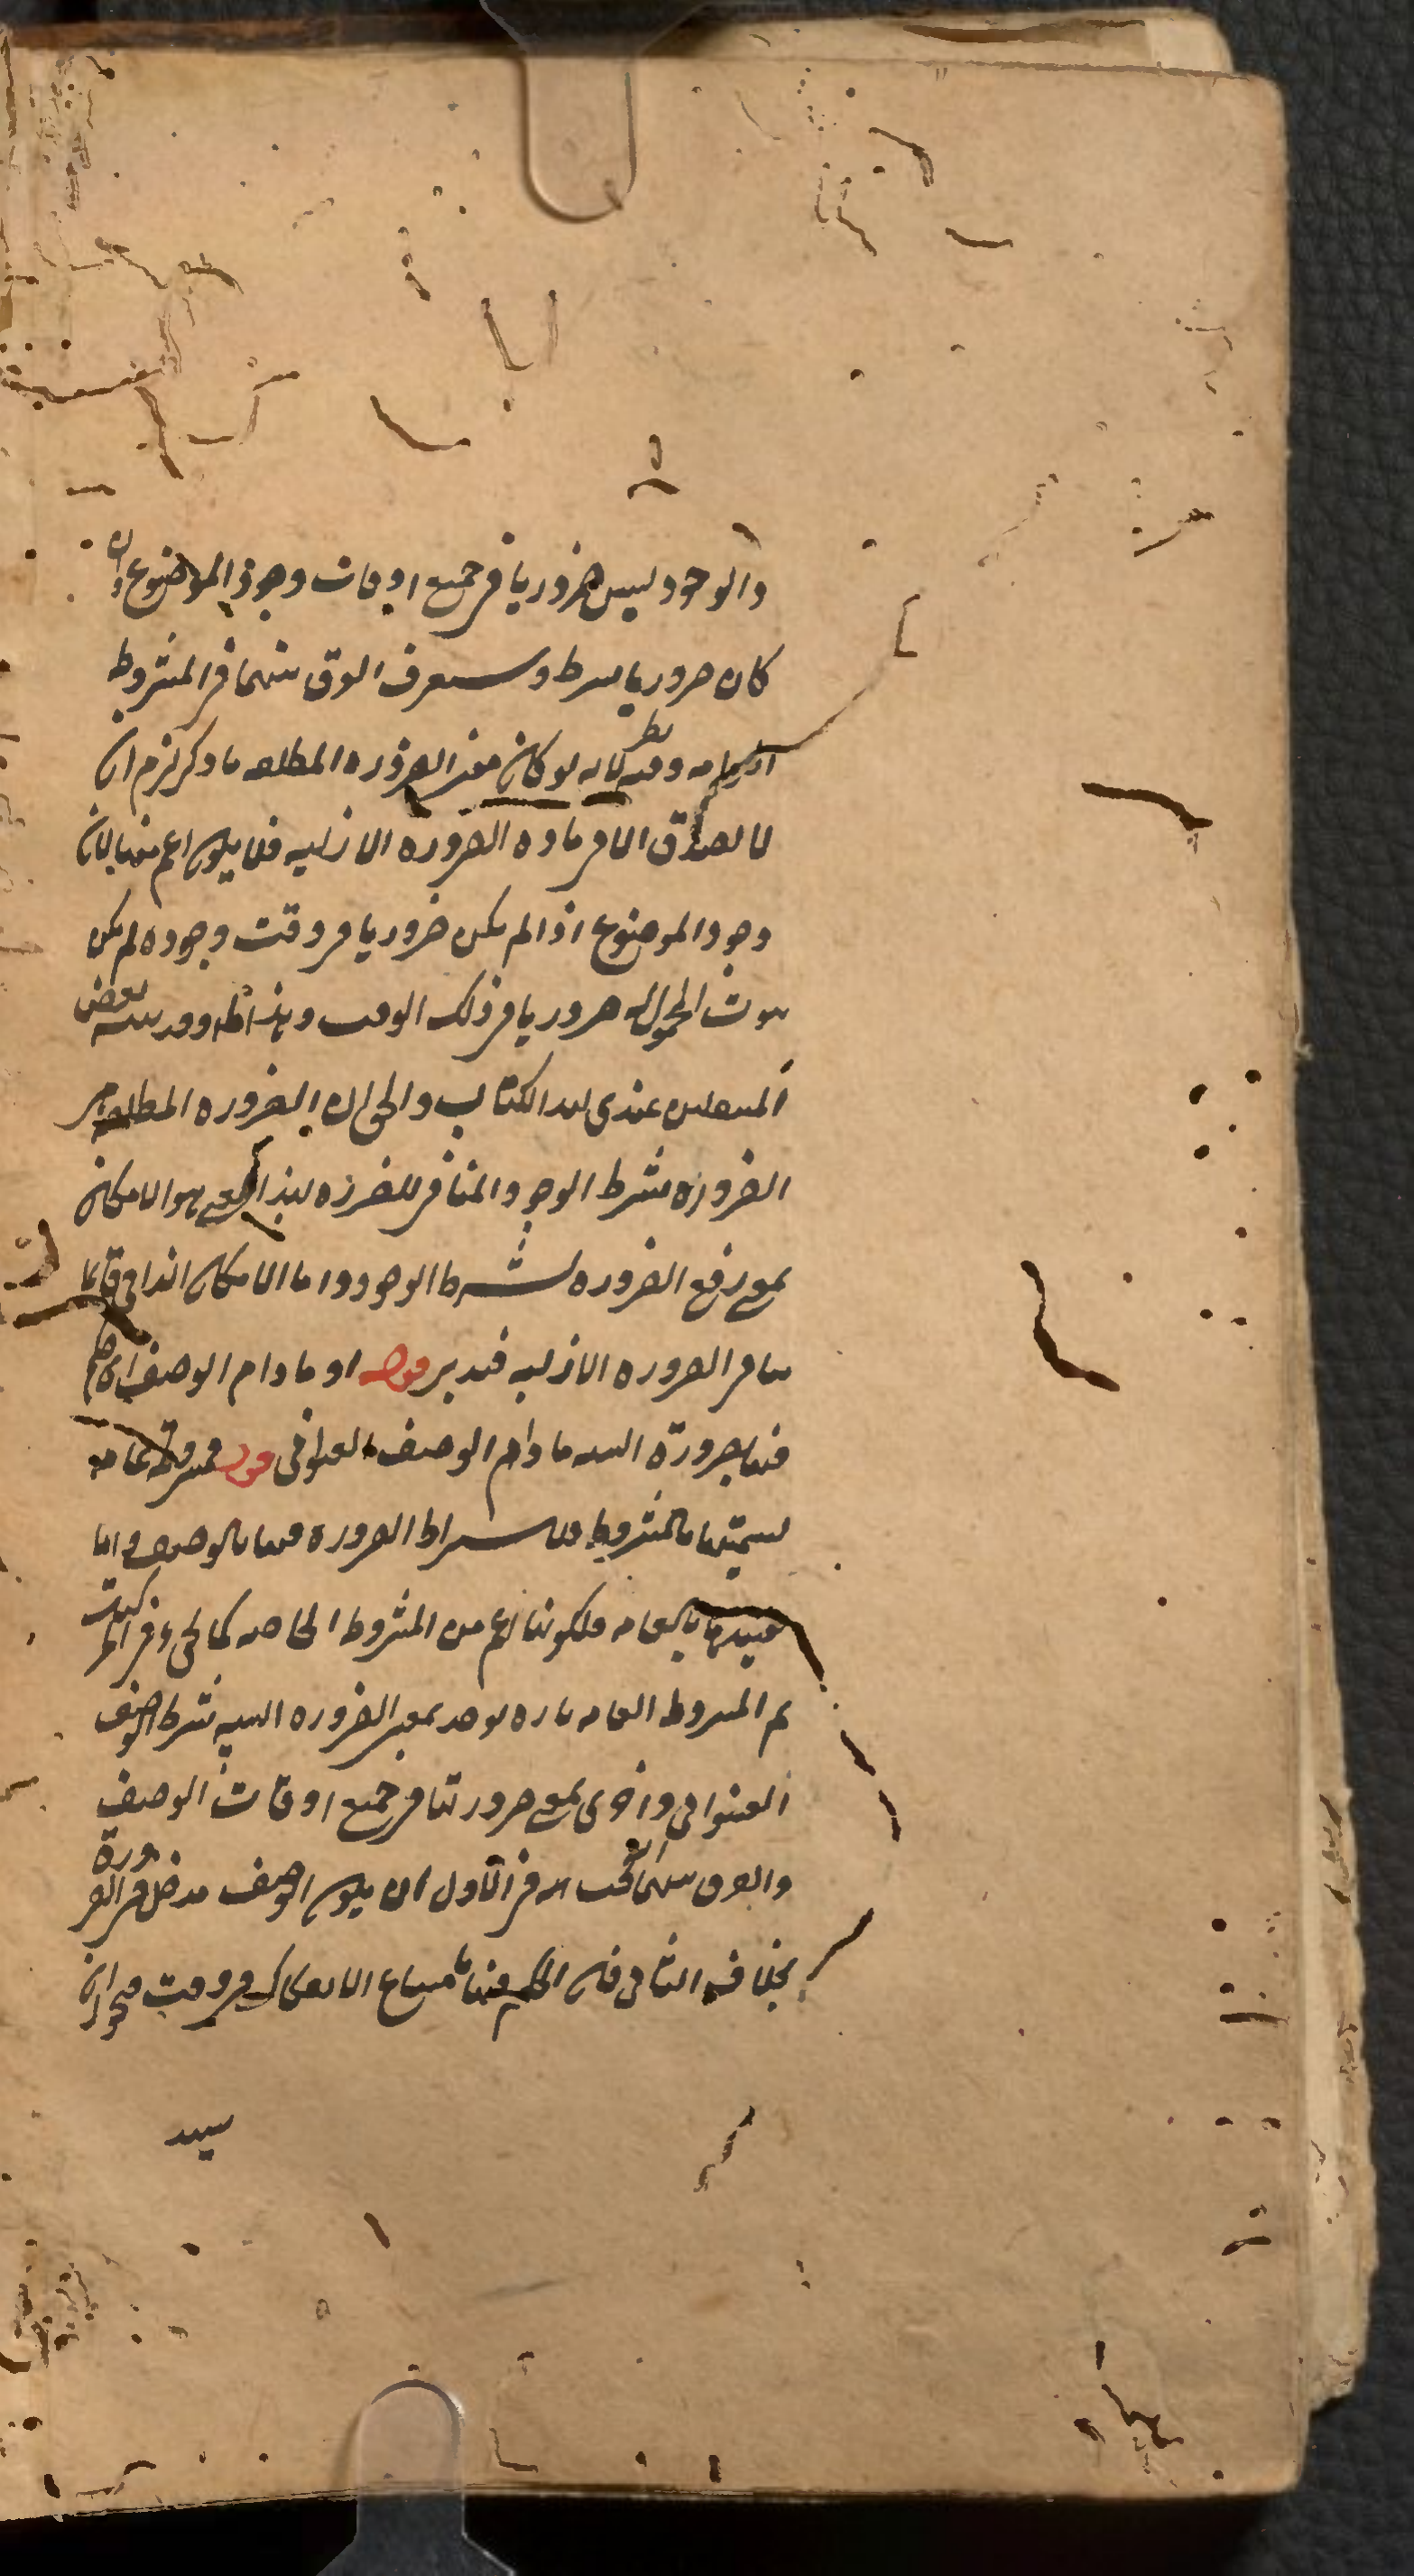 والوجود ليس ضروريا في جميع اوقات وجود الموضوع وان
كان ضروريا بشرط وستعرف الفرق بينهما في المشروطة
العامة وفيه نظر لانه لو كان معنى الضرورة المطلقة ما ذكر لزم ان
لا تصدق الا في مادة الضرورة الازلية فلا يكون اعم منها لان
وجود الموضوع اذا لم يكن ضروريا في وقت وجوده لم يكن
ثبوت المحمول له ضروريا في ذلك الوقت
عندي الكتاب والحق ان الضرورة المطلقة هي
الضرورة بشرط الوجود المنافي للضرورة بهذا المعنى هو الامكان
بمعنى رفع الضرورة بشرط الوجود واما الامكان الذاتي فانما
ينافي الضرورة الازلية فتدبر قوله او ما دام الوصف اي حكم
فيها بضرورة النسبة ما دام الوصف العنواني قوله فمشروطة عامة
تسميتها بالمشروطة لاشتراط الضرورة فيها بالوصف واما
تقييدها بالعامة فلكونها اعم من المشروطة الخاصة كما يجيء في المركبات
ثم المشروطة العامة تارة توخذ بمعنى الضرورة النسبة بشرط الوصف
العنواني واخرى بمعنى ضرورتها في جميع اوقات الوصف
والفرق بينهما في الاول ان يكون الوصف مدخل في الضرورة
بخلاف الثاني فان الحكم فيها بامتناع الانفكاك في وقت فيجوز ان
سيد